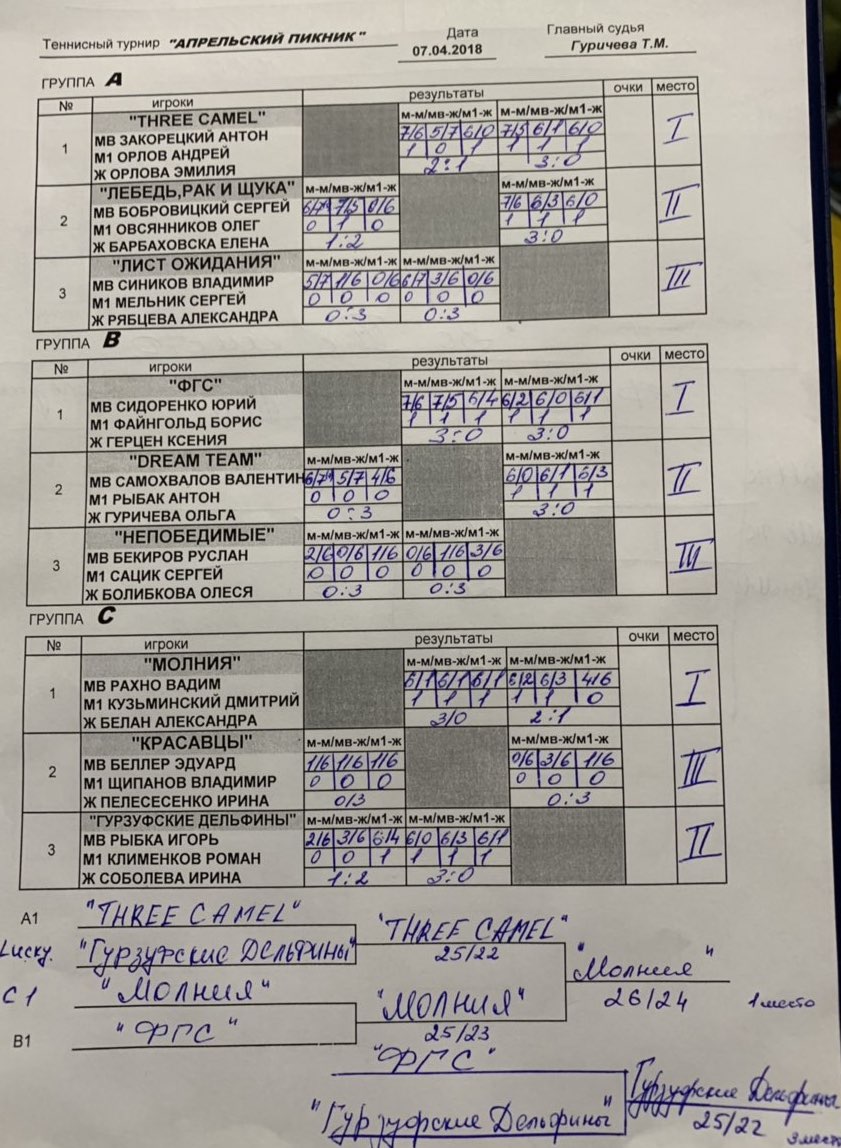 Теннисный турнир "АПРЕЛЬСКИЙ ПИКНИК"
Дата
07.04.2018
Главный судья
Гуричева Т.М.
ГРУППА A
№ игроки результаты очки место
"THREE CAMEL" м-м/мв-ж/м1-ж м-м/мв-ж/м1-ж
1 МВ ЗАКОРЕЦКИЙ АНТОН 7/6 5/7 6/0 7/5 6/1 6/0 I
М1 ОРЛОВ АНДРЕЙ 1 0 1 1 1 1
Ж ОРЛОВА ЭМИЛИЯ 2:1 3:0
"ЛЕБЕДЬ,РАК И ЩУКА" м-м/мв-ж/м1-ж м-м/мв-ж/м1-ж
2 МВ БОБРОВИЦКИЙ СЕРГЕЙ 6/7 7/5 0/6 7/6 6/3 6/0 II
М1 ОВСЯННИКОВ ОЛЕГ 0 1 0 1 1 1
Ж БАРБАХОВСКА ЕЛЕНА 1:2 3:0
"ЛИСТ ОЖИДАНИЯ" м-м/мв-ж/м1-ж м-м/мв-ж/м1-ж
3 МВ СИНИКОВ ВЛАДИМИР 5/7 1/6 0/6 6/7 3/6 0/6 III
М1 МЕЛЬНИК СЕРГЕЙ 0 0 0 0 0 0
Ж РЯБЦЕВА АЛЕКСАНДРА 0:3 0:3
ГРУППА B
№ игроки результаты очки место
"ФГС" м-м/мв-ж/м1-ж м-м/мв-ж/м1-ж
1 МВ СИДОРЕНКО ЮРИЙ 7/6 7/5 6/4 6/2 6/0 6/1 I
М1 ФАЙНГОЛЬД БОРИС 1 1 1 1 1 1
Ж ГЕРЦЕН КСЕНИЯ 3:0 3:0
"DREAM TEAM" м-м/мв-ж/м1-ж м-м/мв-ж/м1-ж
2 МВ САМОХВАЛОВ ВАЛЕНТИН 6/7 5/7 4/6 6/0 6/1 6/3 II
М1 РЫБАК АНТОН 0 0 0 1 1 1
Ж ГУРИЧЕВА ОЛЬГА 0:3 3:0
"НЕПОБЕДИМЫЕ" м-м/мв-ж/м1-ж м-м/мв-ж/м1-ж
3 МВ БЕКИРОВ РУСЛАН 2/6 0/6 1/6 0/6 1/6 3/6 III
М1 САЦИК СЕРГЕЙ 0 0 0 0 0 0
Ж БОЛИБКОВА ОЛЕСЯ 0:3 0:3
ГРУППА C
№ игроки результаты очки место
"МОЛНИЯ" м-м/мв-ж/м1-ж м-м/мв-ж/м1-ж
1 МВ РАХНО ВАДИМ 6/1 6/1 6/1 6/2 6/3 4/6 I
М1 КУЗЬМИНСКИЙ ДМИТРИЙ 1 1 1 1 1 0
Ж БЕЛАН АЛЕКСАНДРА 3/0 2:1
"КРАСАВЦЫ" м-м/мв-ж/м1-ж м-м/мв-ж/м1-ж
2 МВ БЕЛЛЕР ЭДУАРД 1/6 1/6 1/6 0/6 3/6 1/6 III
М1 ЩИПАНОВ ВЛАДИМИР 0 0 0 0 0 0
Ж ПЕЛЕСЕСЕНКО ИРИНА 0/3 0:3
"ГУРЗУФСКИЕ ДЕЛЬФИНЫ" м-м/мв-ж/м1-ж м-м/мв-ж/м1-ж
3 МВ РЫБКА ИГОРЬ 2/6 3/6 6/4 6/0 6/3 6/1 II
М1 КЛИМЕНКОВ РОМАН 0 0 1 1 1 1
Ж СОБОЛЕВА ИРИНА 1:2 3:0
A1 "THREE CAMEL"
"THREE CAMEL"
Lucky. "Гурзуфские Дельфины"
25/22
"Молния"
C1 "Молния"
26/24 1 место
"МОЛНИЯ"
B1 "ФГС"
25/23
"ФГС"
Гурзуфские Дельфины
"Гурзуфские Дельфины"
25/22 3 место